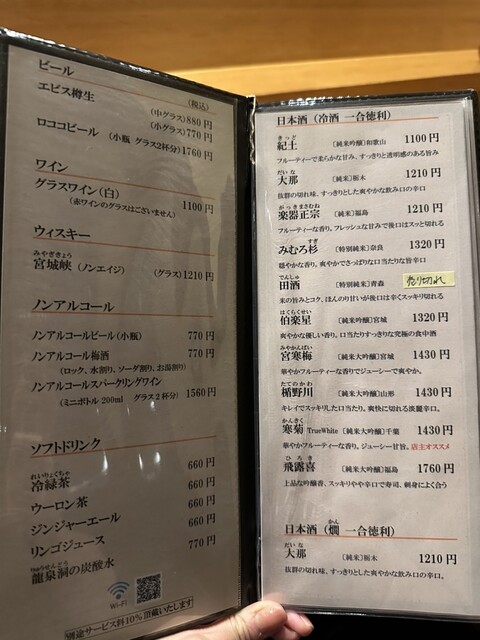 ビール
(税込)
エビス樽生
(中グラス)880円
(小グラス)770円
ロココビール (小瓶 グラス2杯分)1760円
ワイン
グラスワイン(白) 1100円
(赤ワインのグラスはございません)
ウィスキー
みやぎきょう
宮城峡 (ノンエイジ) (グラス)1210円
ノンアルコール
ノンアルコールビール(小瓶) 770円
ノンアルコール梅酒 770円
(ロック、水割り、ソーダ割り、お湯割り)
ノンアルコールスパークリングワイン
(ミニボトル200ml グラス2杯分) 1560円
ソフトドリンク
れいりょくちゃ
冷緑茶 660円
ウーロン茶 660円
ジンジャーエール 660円
リンゴジュース 660円
りゅうせんどう
龍泉洞の炭酸水 770円
Wi-Fi
別途サービス料10%頂戴いたします
日本酒 (冷酒 一合徳利)
きっど
紀土 〔純米吟醸〕和歌山 1100円
フルーティーで柔らかな甘み、すっきりと透明感のある旨み
だいな
大那 〔純米〕栃木 1210円
抜群の切れ味、すっきりとした爽やかな飲み口の辛口
がっきまさむね
楽器正宗 〔純米〕福島 1210円
フルーティーな香り。フレッシュな甘みで後口はスッと切れる
すぎ
みむろ杉 〔特別純米〕奈良 1320円
穏やかな香り、爽やかでさっぱりな口当たりな旨口
でんしゅ
田酒 〔特別純米〕青森 売り切れ
米の旨みとコク。ほんのり甘いが後口は辛くスッキリ切れる
はくらくせい
伯楽星 〔純米吟醸〕宮城 1320円
爽やかな優しい香り。口当たりすっきりな究極の食中酒
みやかんばい
宮寒梅 〔純米大吟醸〕宮城 1430円
華やかフルーティーな香りでジューシーで爽やか。
たてのかわ
楯野川 〔純米大吟醸〕山形 1430円
キレイでスッキリした口当たり。爽快に切れる淡麗辛口。
かんきく
寒菊 TrueWhite 〔純米大吟醸〕千葉 1430円
華やかフルーティーな香り。ジューシー甘旨。店主オススメ
ひろき
飛露喜 〔純米大吟醸〕福島 1760円
上品な吟醸香、スッキリやや辛口で寿司、刺身によく合う
日本酒 (燗 一合徳利)
かん
だいな
大那 〔純米〕栃木 1210円
抜群の切れ味、すっきりとした爽やかな飲み口の辛口。